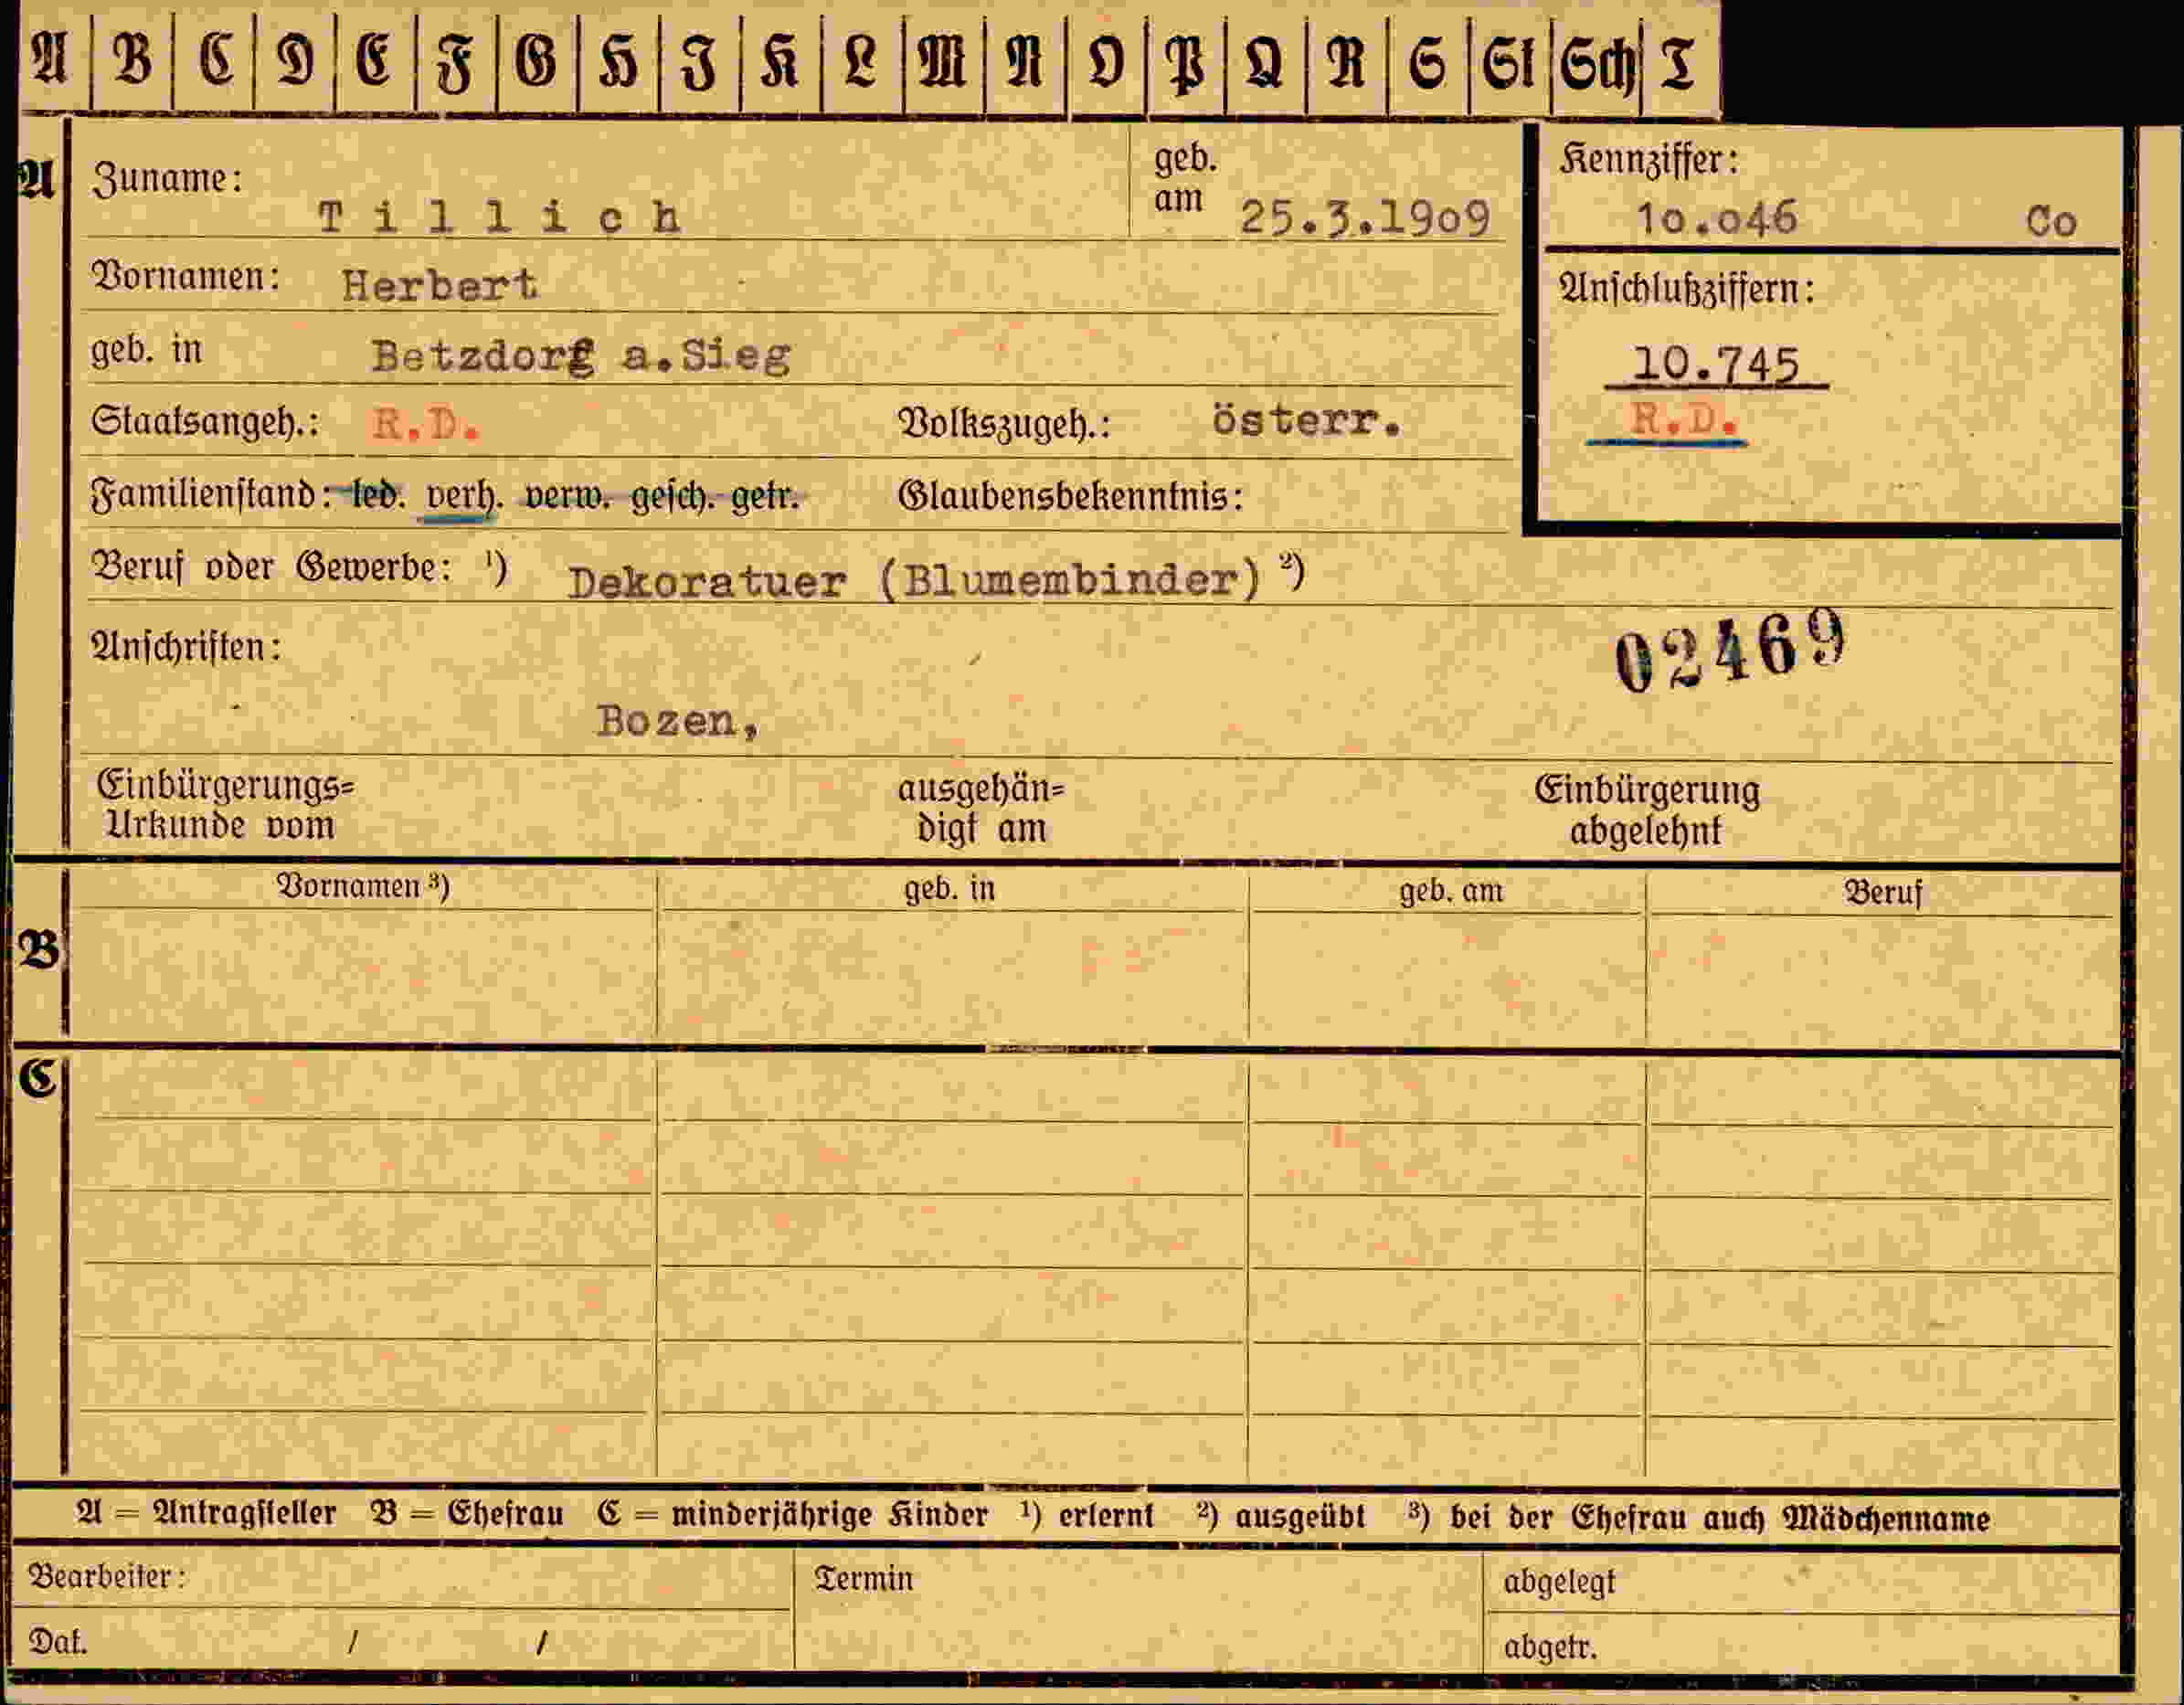 A B C D E F G H I K L M N O P Q R S St Sch T
A Zuname: Tillich geb. am 25.3.1909 Kennziffer: 10.046 Co
Vornamen: Herbert
Anschlußziffern:
geb. in Betzdorf a.Sieg 10.745
Staatsangeh.: R.D. Volkszugeh.: österr. R.D.
Familienstand: led. verh. verw. gesch. getr. Glaubensbekenntnis:
Beruf oder Gewerbe: ¹) Dekoratuer (Blumembinder) ²)
Anschriften: 02469
Bozen,
Einbürgerungs= ausgehän= Einbürgerung
Urkunde vom digt am abgelehnt
Vornamen ³) geb. in geb. am Beruf
B
C
A = Antragsteller B = Ehefrau C = minderjährige Kinder ¹) erlernt ²) ausgeübt ³) bei der Ehefrau auch Mädchenname
Bearbeiter: Termin abgelegt
Dat. / / abgetr.